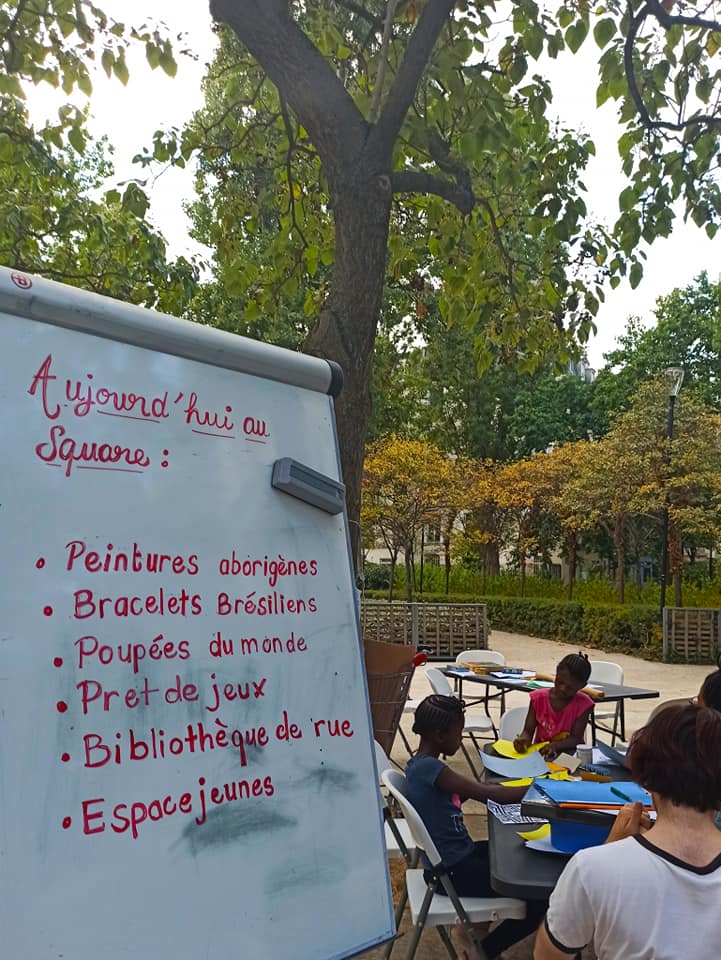 Aujourd'hui au
Square :
• Peintures aborigènes
• Bracelets Brésiliens
• Poupées du monde
• Pret de jeux
• Bibliothèque de rue
• Espace jeunes